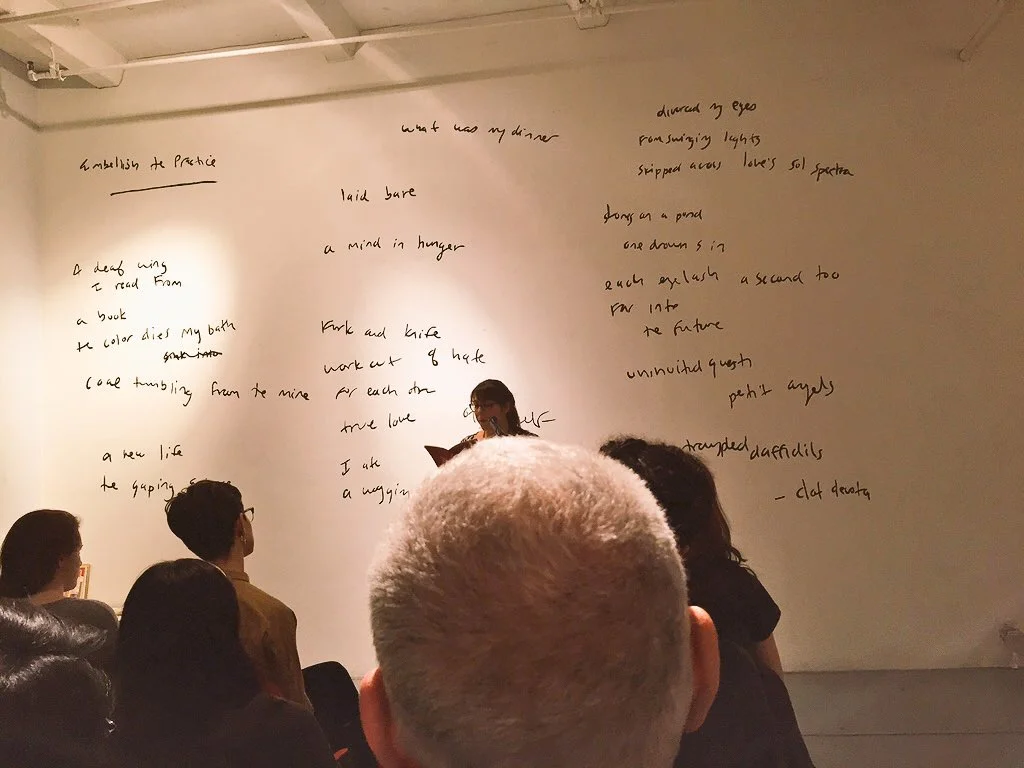 Embellish te Practice
A deaf wing
I read from
a book
te color dies my bath
Coal tumbling from te mine
a new life
te gaping
what was my dinner
laid bare
a mind in hunger
Fork and knife
work out of hate
for each other
true love
I ate
a
my eyes
From swinging lights
skipped across love's sol spectra
on a pond
one drowns in
each eyelash a second too
far into
te future
uninvited guests
petit angels
trampled daffidils